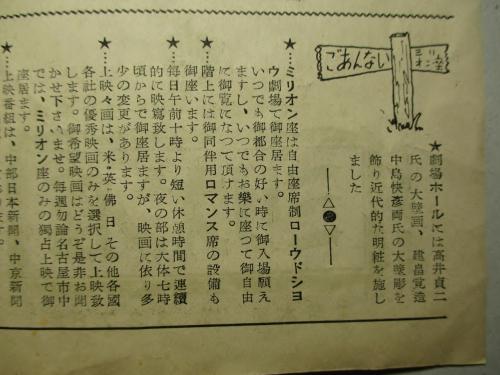 ミリオン座
ごあんない
★劇場ホールには高井貞二
氏の大壁画、建畠覚造
中島快彦両氏の大彫を
飾り近代的な明粧を施し
ました
★ミリオン座は自由座席制ローウドシヨ
ウ劇場で御座居ます。
いつでも御都合の好い時に御入場願え
ますし、いつでもお樂に座つて御自由
に御覧になつて頂けます。
★階上には御同伴用ロマンス席の設備も
御座います。
★毎日午前十時より短い休憩時間で連續
的に映寫致します。夜の部は大体七時
頃からで御座居ますが、映画に依り多
少の変更があります。
★上映々画は、米・英・佛・日その他各國
各社の優秀映画のみを選択して上映致
します。御希望映画はどうぞ是非お聞
かせ下さいませ。毎週勿論名古屋市中
では、ミリオン座のみの獨占上映で御
座居ます。
★上映番組は、中部日本新聞、中京新聞